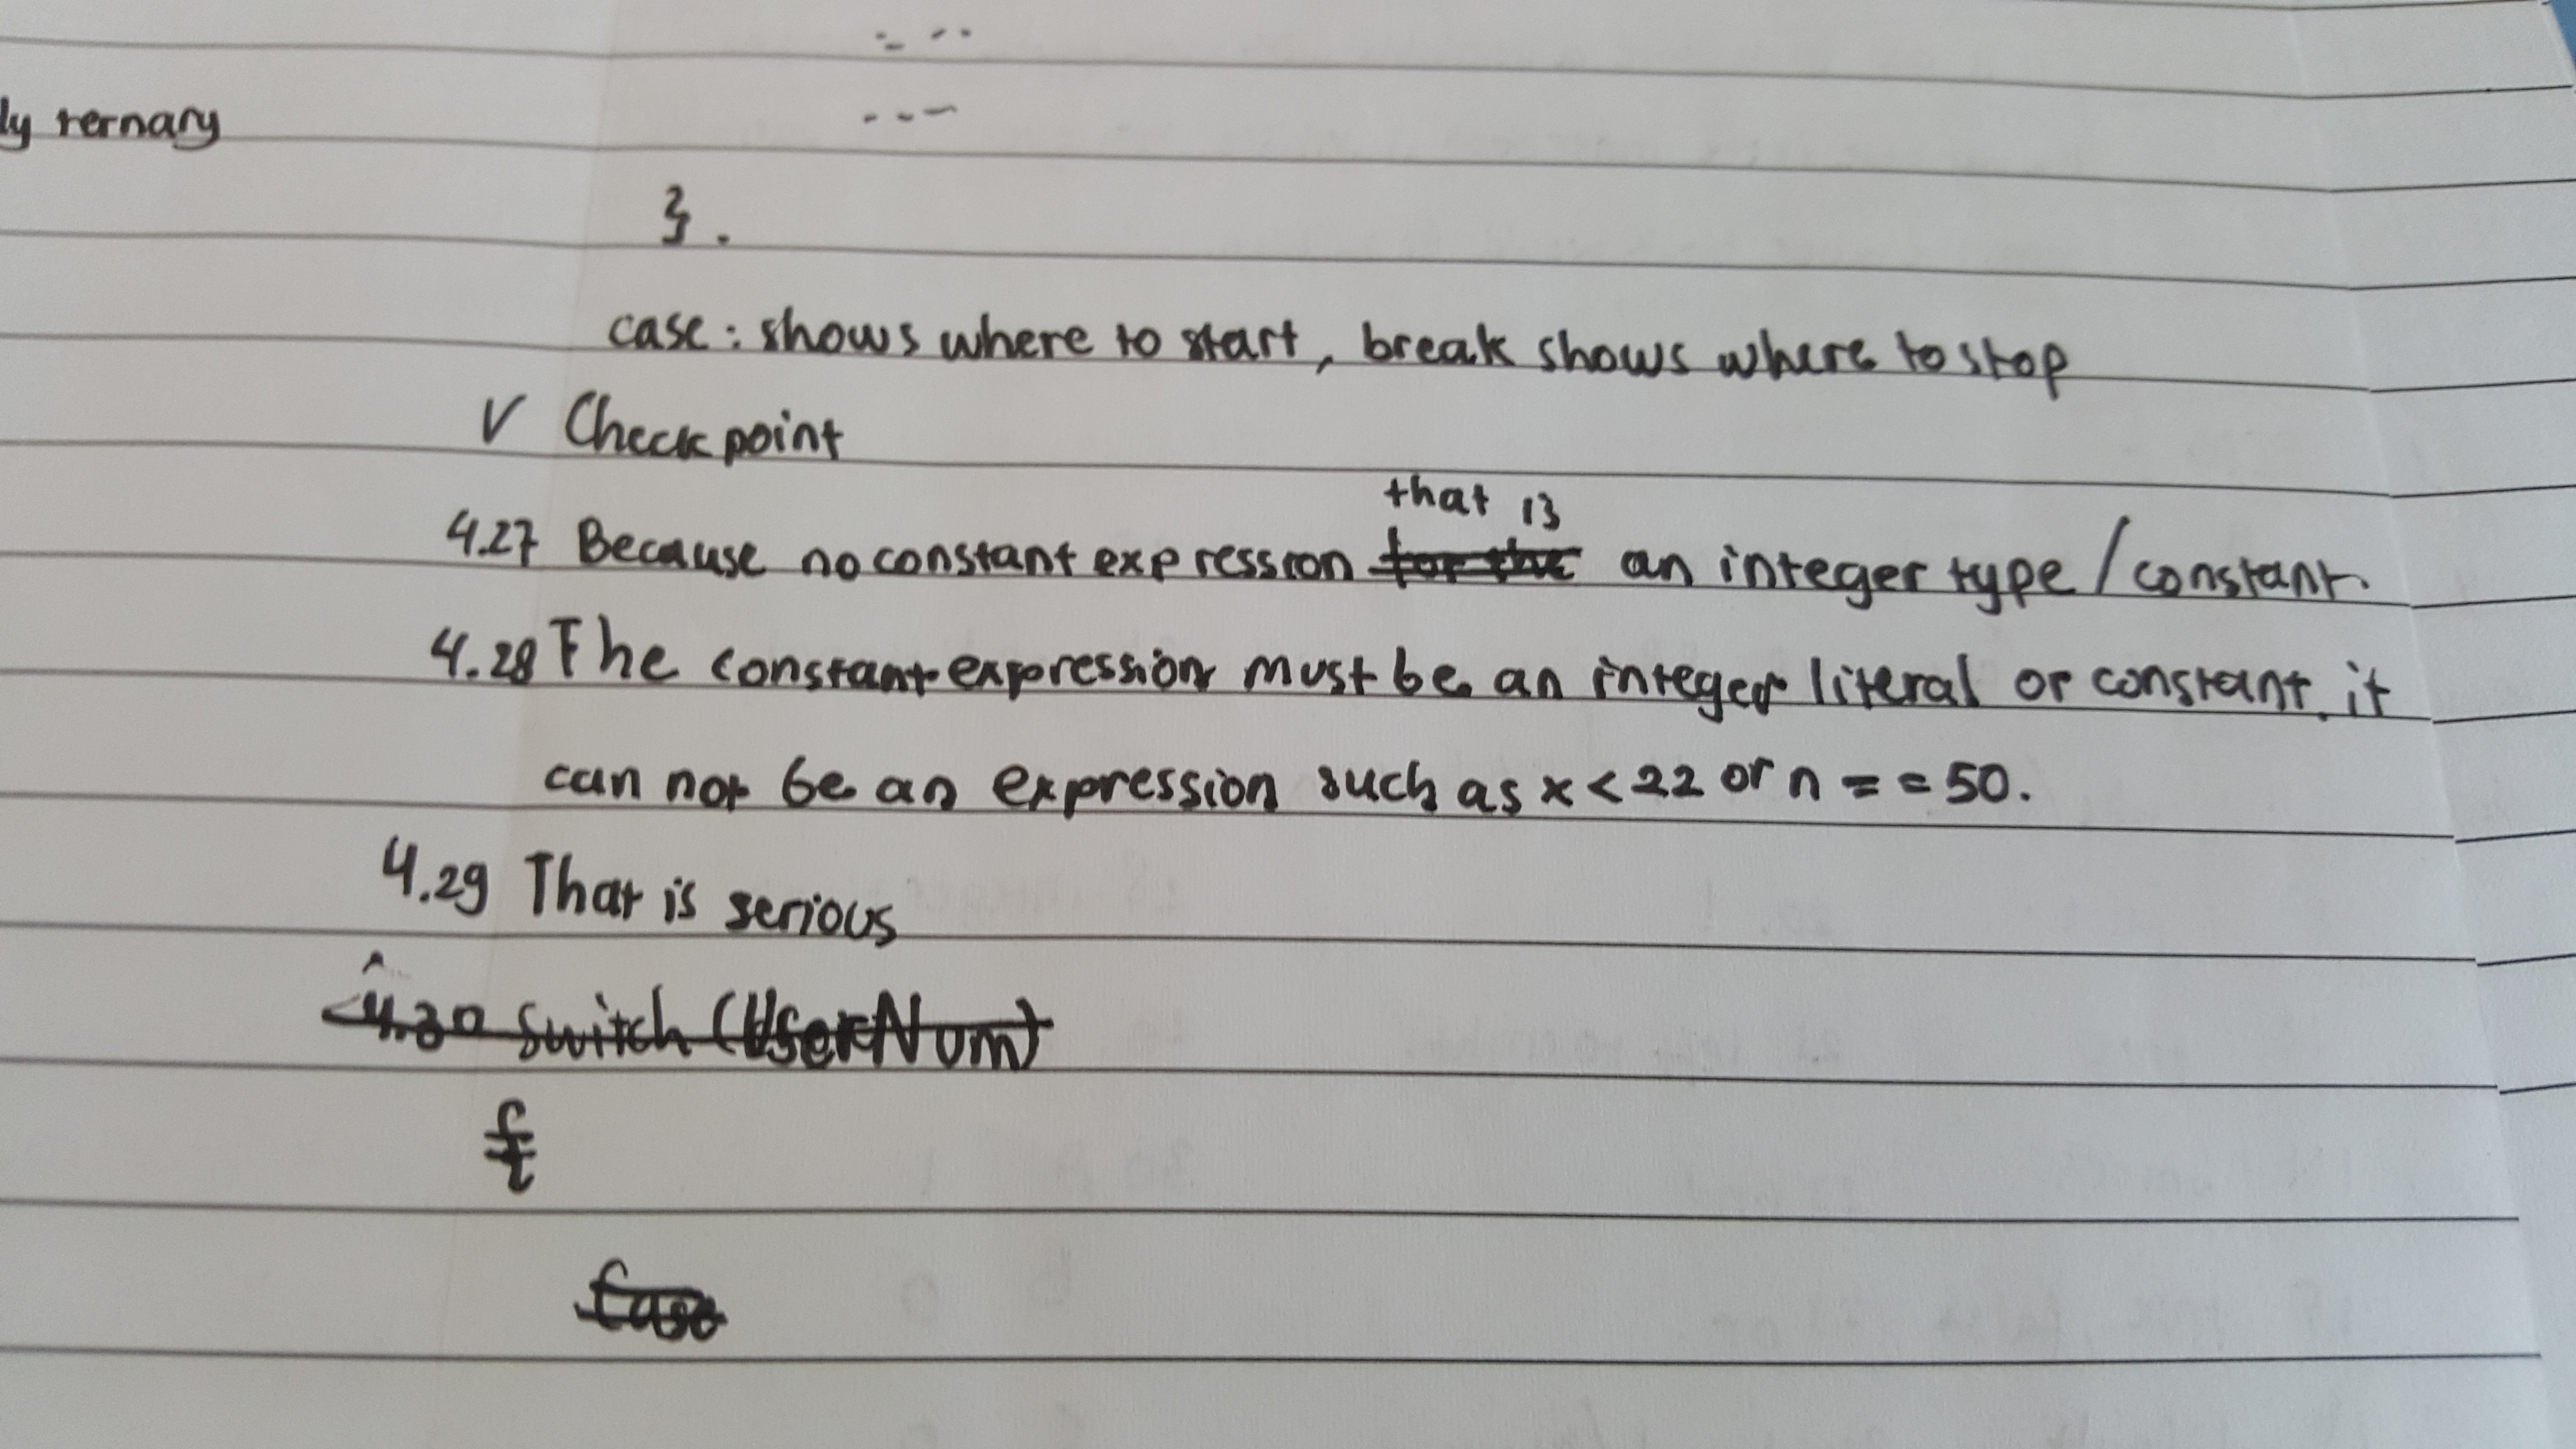 ly ternary
}.
case: shows where to start, break shows where to stop
√ Checkpoint
that is
4.27 Because no constant expression for the an integer type/constant.
4.28 The constant expression must be an integer literal or constant. it
can not be an expression such as x < 22 or n = = 50.
4.29 That is serious
4.30 switch (UserNum)
{
Case